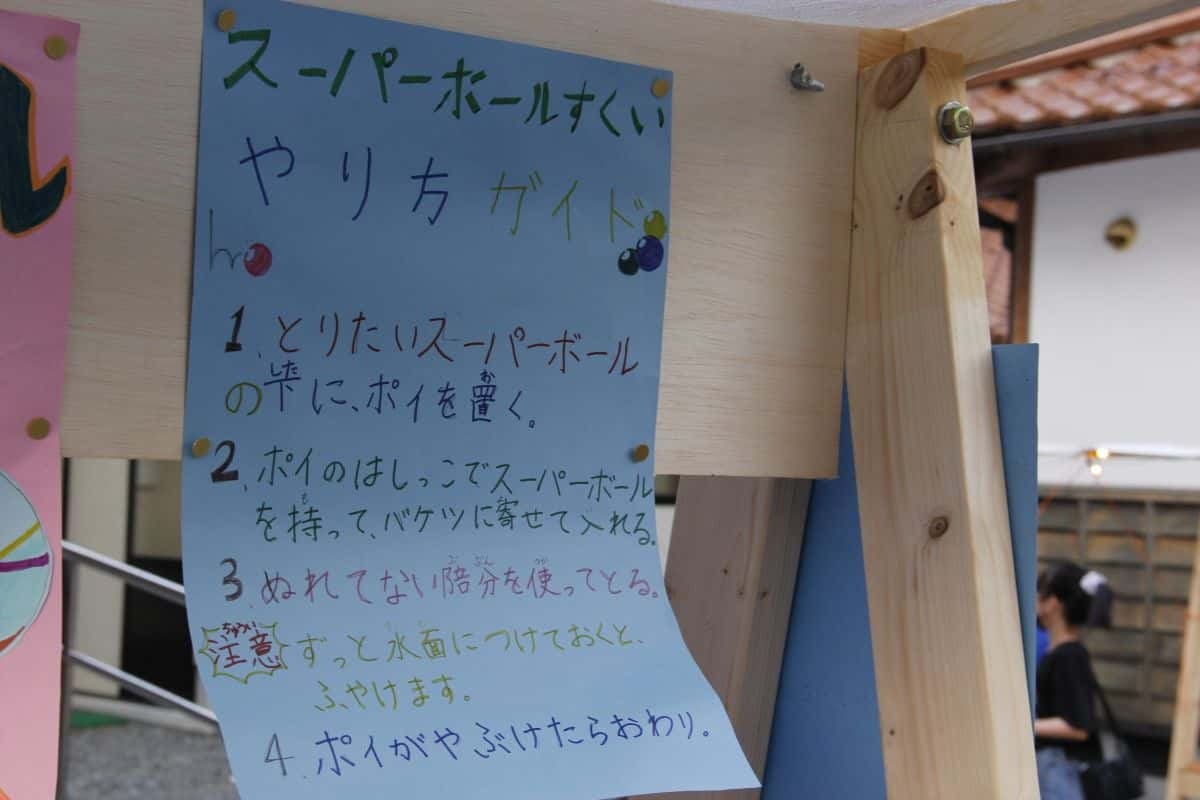 スーパーボールすくい
やり方ガイド
1、とりたいスーパーボール
の下に、ポイを置く。
2、ポイのはしっこでスーパーボール
を持って、バケツに寄せて入れる。
3、ぬれてない陪分を使ってとる。
注意 ずっと水面につけておくと、
ふやけます。
4、ポイがやぶけたらおわり。